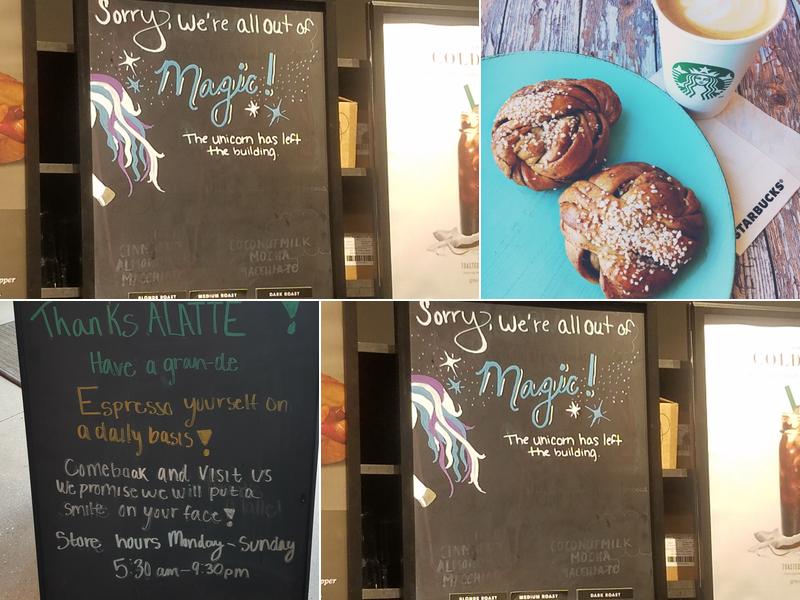 Sorry, We're all out of
Magic!
The unicorn has left
the building.
COCONUTMILK
MOCHA
MACCHIATO
BLONDE ROAST
MEDIUM ROAST
DARK ROAST
COLD
TOASTED
pper
STARBUCKS®
Thanks ALATTE !
Have a gran-de
Espresso yourself on
a daily basis!
Comebaak and Visit us
We promise we will put a
smile on your face!
Store hours Monday - Sunday
5:30 am-9:30pm
Sorry, We're all out of
Magic!
The unicorn has left
the building.
COCONUTMILK
MOCHA
MACCHIATO
BLONDE ROAST
MEDIUM ROAST
DARK ROAST
COLD
TOASTED
pper